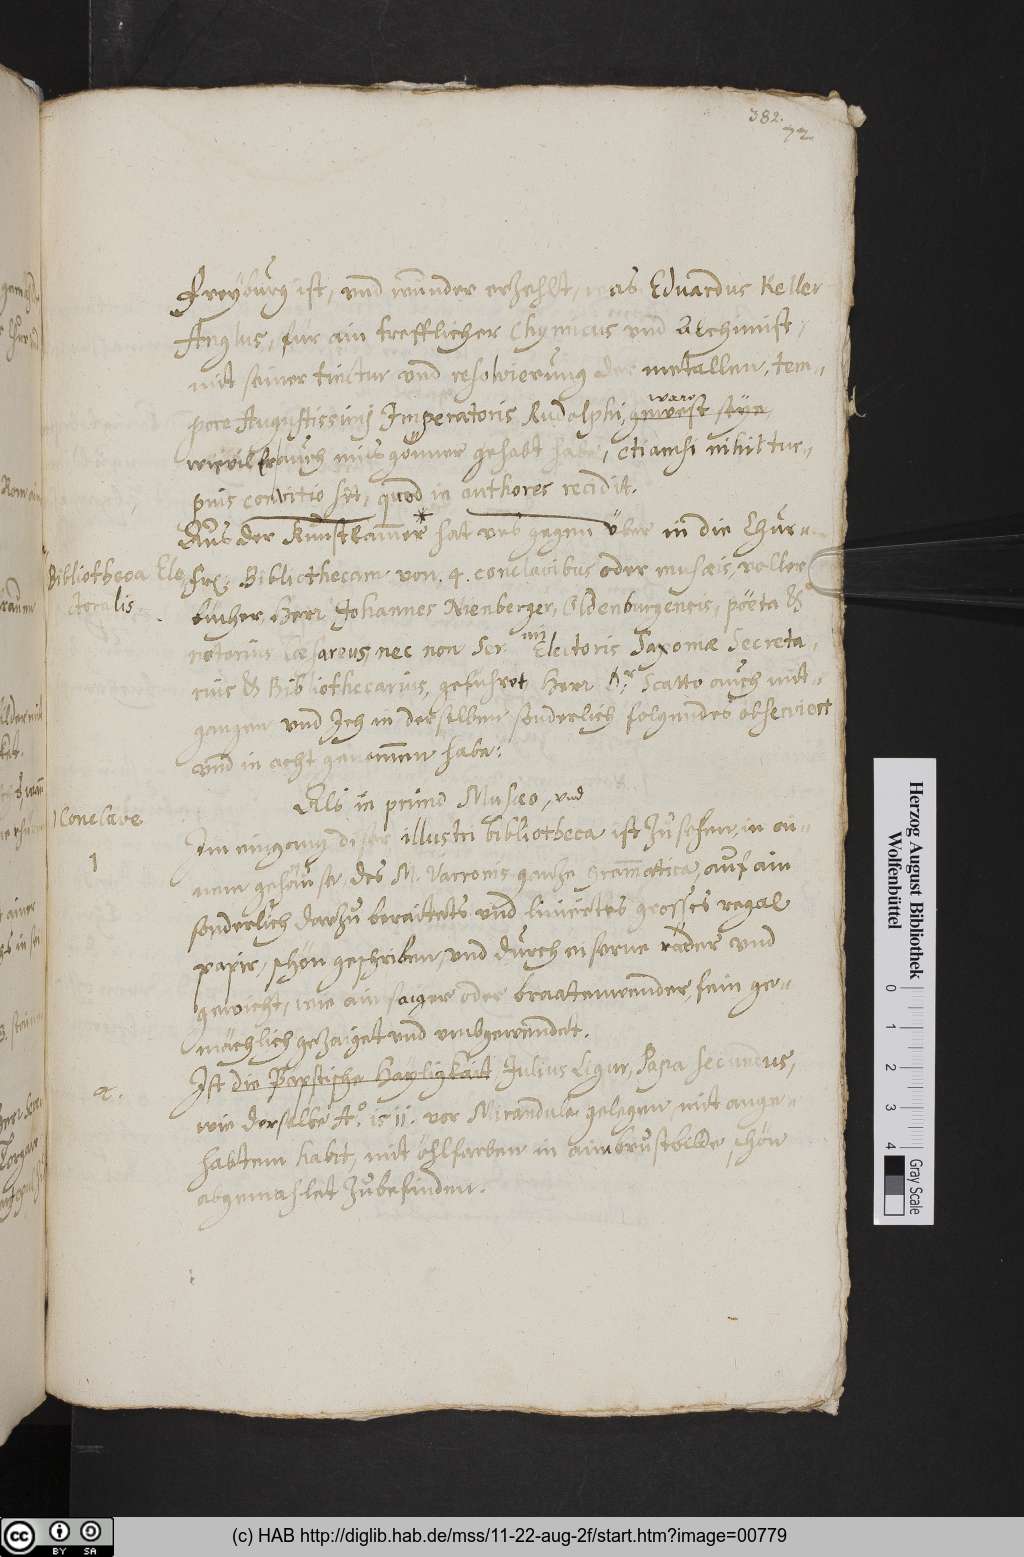 382.
72
Freyburg ist, vnd wunder erzehlt, was Eduardus Keller
Anglus, fur ain trefflicher Chymicus vnd Alchimist,
mit seiner tinctur vnd resolvierung der metallen, tem-
pore Augustissimi Imperatoris Rudolphi, gewest seye, ware
wievil er auch misgönner gehabt habe, etiamsi nihil tur-
pius convitio sit, quod in authores recidit.
Aus der Kunstkamer hat vns gegen über in die Chur-
Bibliotheca Ele
ctoralis.
frl: Bibliothecam von. 4. conclavibus oder musæis, voller
bücher, Herr Johannes Nienberger, Oldenburgensis, pöeta &
notarius Cæsareus, nec non Ser.mi Electoris Saxoniæ Secreta
rius & Bibliothecarius, gefuhret, Herr Dr. Scatto auch mit-
gangen vnd Ich in derselben sonderlich folgendes observiert
vnd in acht genommen habe:
Als in primo Musæo, vnd
1 Conclave
Im eingang diser illustri bibliotheca ist zu sehen, in ai-
1
nem gehäuse, des M. Varronis gantze grammatica, auf ain
sonderlich darzu beraitetes vnd liniertes grosses regal
papir, schön geschriben, vnd durch eiserne räder vnd
gewicht, wie ain saiger oder braatenwender, fein ge-
mächlich gezaiget vnd vmbgewendet.
2.
Ist die Papstische Hayligkait Julius Ligur, Papa Secundus,
wie derselbe Ao. 1511. vor Mirandula gelegen, mit ange-
habtem habit, mit öhlfarben in aim brustbilde, schön
abgemahlet zu befinden.
Herzog August Bibliothek
Wolfenbüttel
0 1 2 3 4
Gray Scale
BY SA
(c) HAB http://diglib.hab.de/mss/11-22-aug-2f/start.htm?image=00779